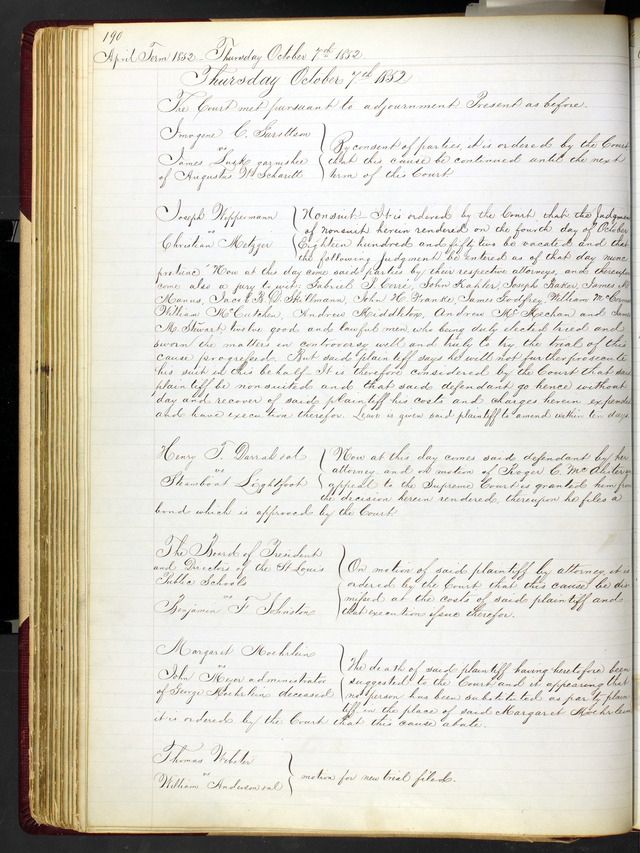 190
April Term 1852 - Thursday October 7th 1852
Thursday October 7th 1852
The Court met pursuant to adjournment Present as before.
Imogene C.
vs
James Lusk garnishee
of Augustus W
By consent of parties, it is ordered by the Court
that this cause be continued until the next
term of this Court
Joseph Weppermann
vs
Christian Metzger
Nonsuit - It is ordered by the Court that the Judgment
of nonsuit herein rendered on the fourth day of October
Eighteen hundred and fifty two be vacated and that
the following judgment be entered as of that day nunc
pro tunc "Now at this day come said parties by their respective attorneys, and thereupon
come also a jury to wit: Gabriel S. Cerre, John Kahler, Joseph Baker, James M
Manus, Jacob B. D. Stillmann, John H. Franke, James Godfrey, William McCorm
William McCutchen, Andrew Middleton, Andrew McKechan and James
M. Stewart twelve good and lawful men, who being duly elected tried and
sworn the matters in controversy well and truly to try the trial of this
cause progressed. But said plaintiff says he will not further prosecute
his suit in this behalf. It is therefore considered by the Court that said
plaintiff be nonsuited and that said defendant go hence without
day and recover of said plaintiff his costs and charges herein expended
and have execution therefor. Leave is given said plaintiff to amend within ten days.
Henry T. Darrah et al
vs
Steamboat Lightfoot
Now at this day comes said defendant by her
attorney and on motion of Roger C. McAllister
appeal to the Supreme Court is granted him from
the decision herein rendered, thereupon he files a
bond which is approved by the Court
The Board of President
and Directors of the St Louis
Public Schools
vs
Benjamin F Johnston
On motion of said plaintiff by attorney it is
ordered by the Court that this cause be dis
missed at the costs of said plaintiff and
that execution issue therefor.
Margaret Koehrlein
vs
John Meyer administrator
of George Koehrlein deceased
The death of said plaintiff having heretofore been
suggested to the Court and it appearing that
no person has been substituted as party plain
tiff in the place of said Margaret Koehrlein
it is ordered by the Court that this cause abate.
Thomas Webster
vs
William Anderson et al
motion for new trial filed.